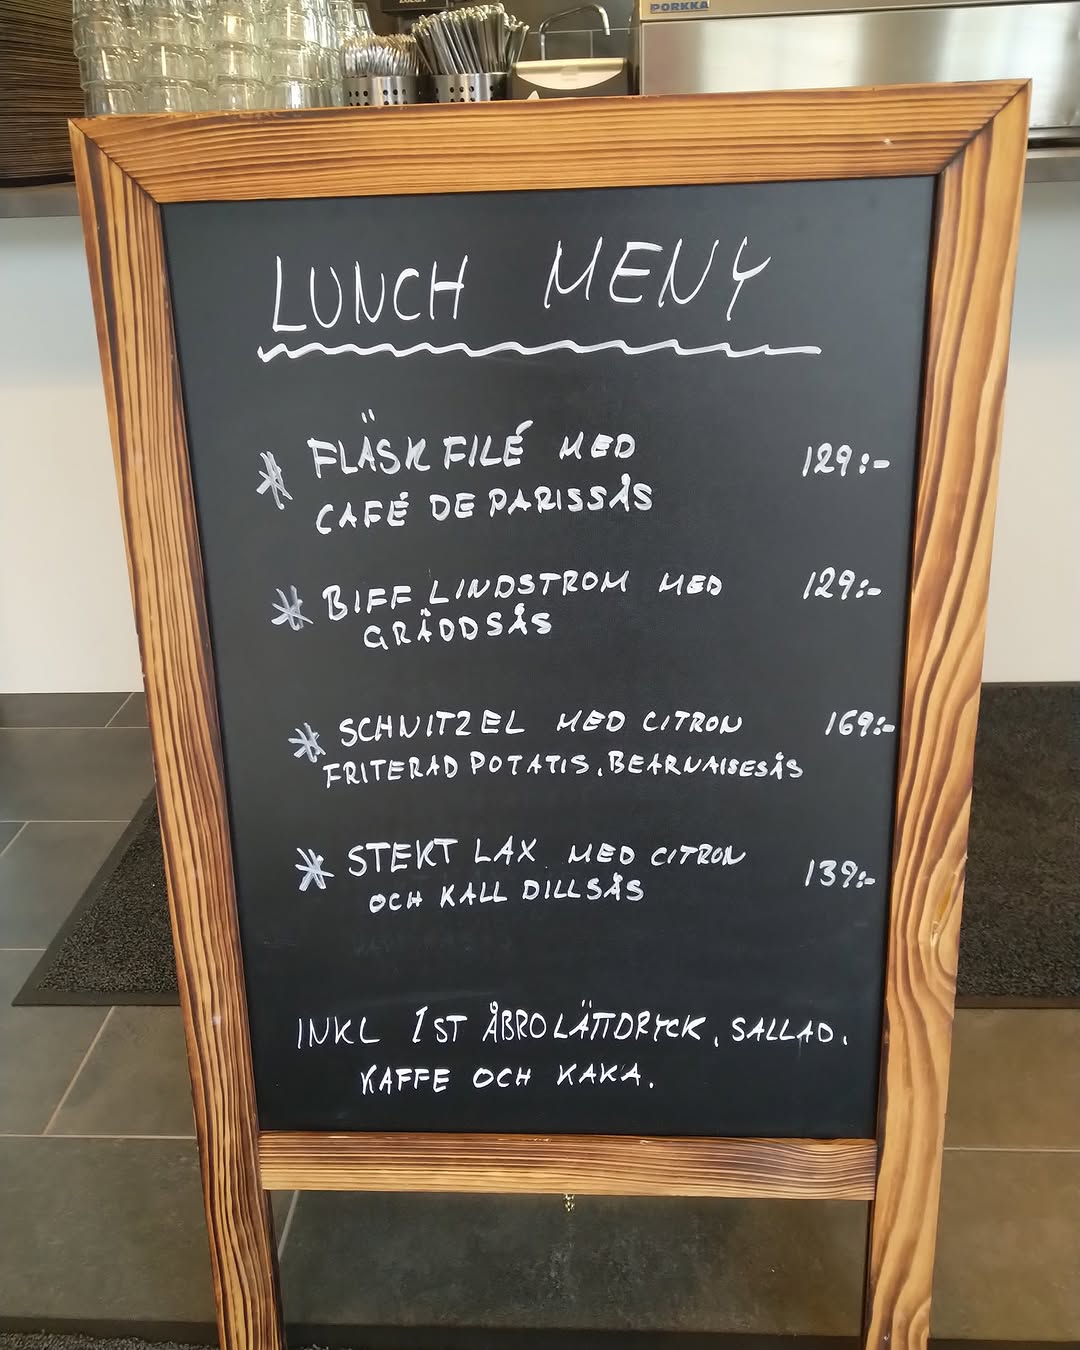 PORKKA
LUNCH MENY
* FLÄSKFILÉ MED 129:-
CAFÉ DE PARISSÅS
* BIFF LINDSTROM MED 129:-
GRÄDDSÅS
* SCHNITZEL MED CITRON 169:-
FRITERAD POTATIS, BEARNAISESÅS
* STEKT LAX MED CITRON 139:-
OCH KALL DILLSÅS
INKL 1ST ÅBRO LÄTTDRYCK, SALLAD,
KAFFE OCH KAKA.